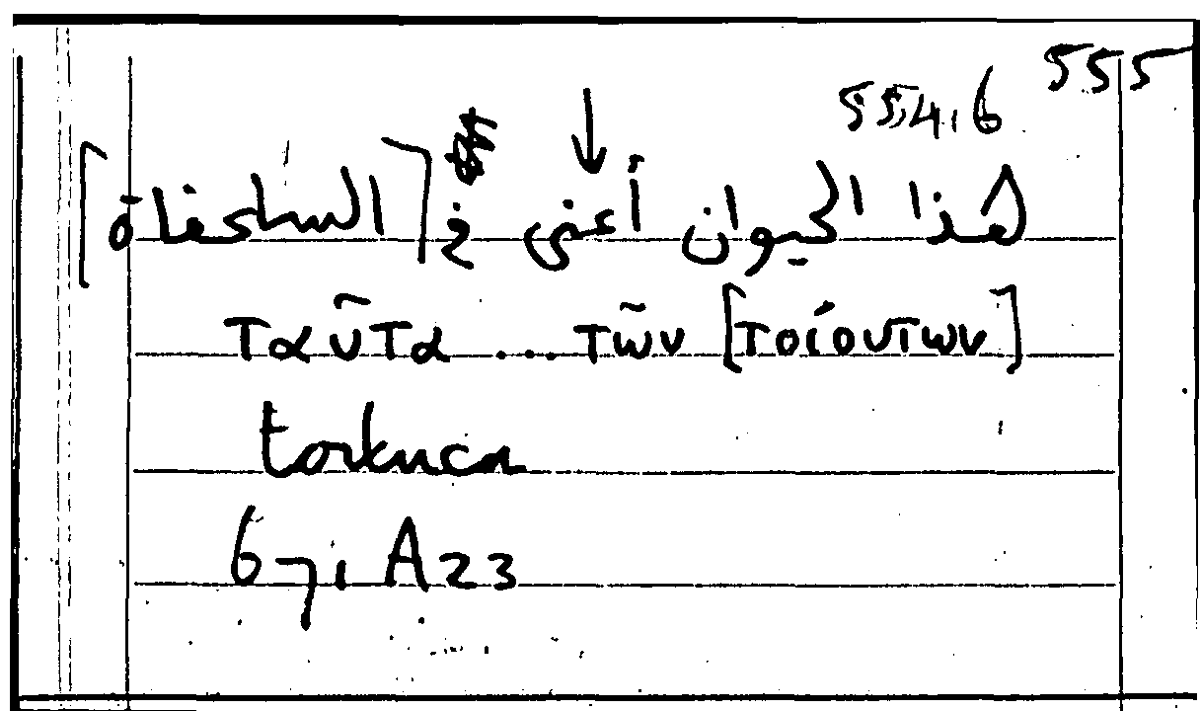 555
554,6
هذا الحيوان أعنى في ⌈السلحفاة⌉
ταῦτα ... τῶν [τοίουτων]
tortuca
671 A23